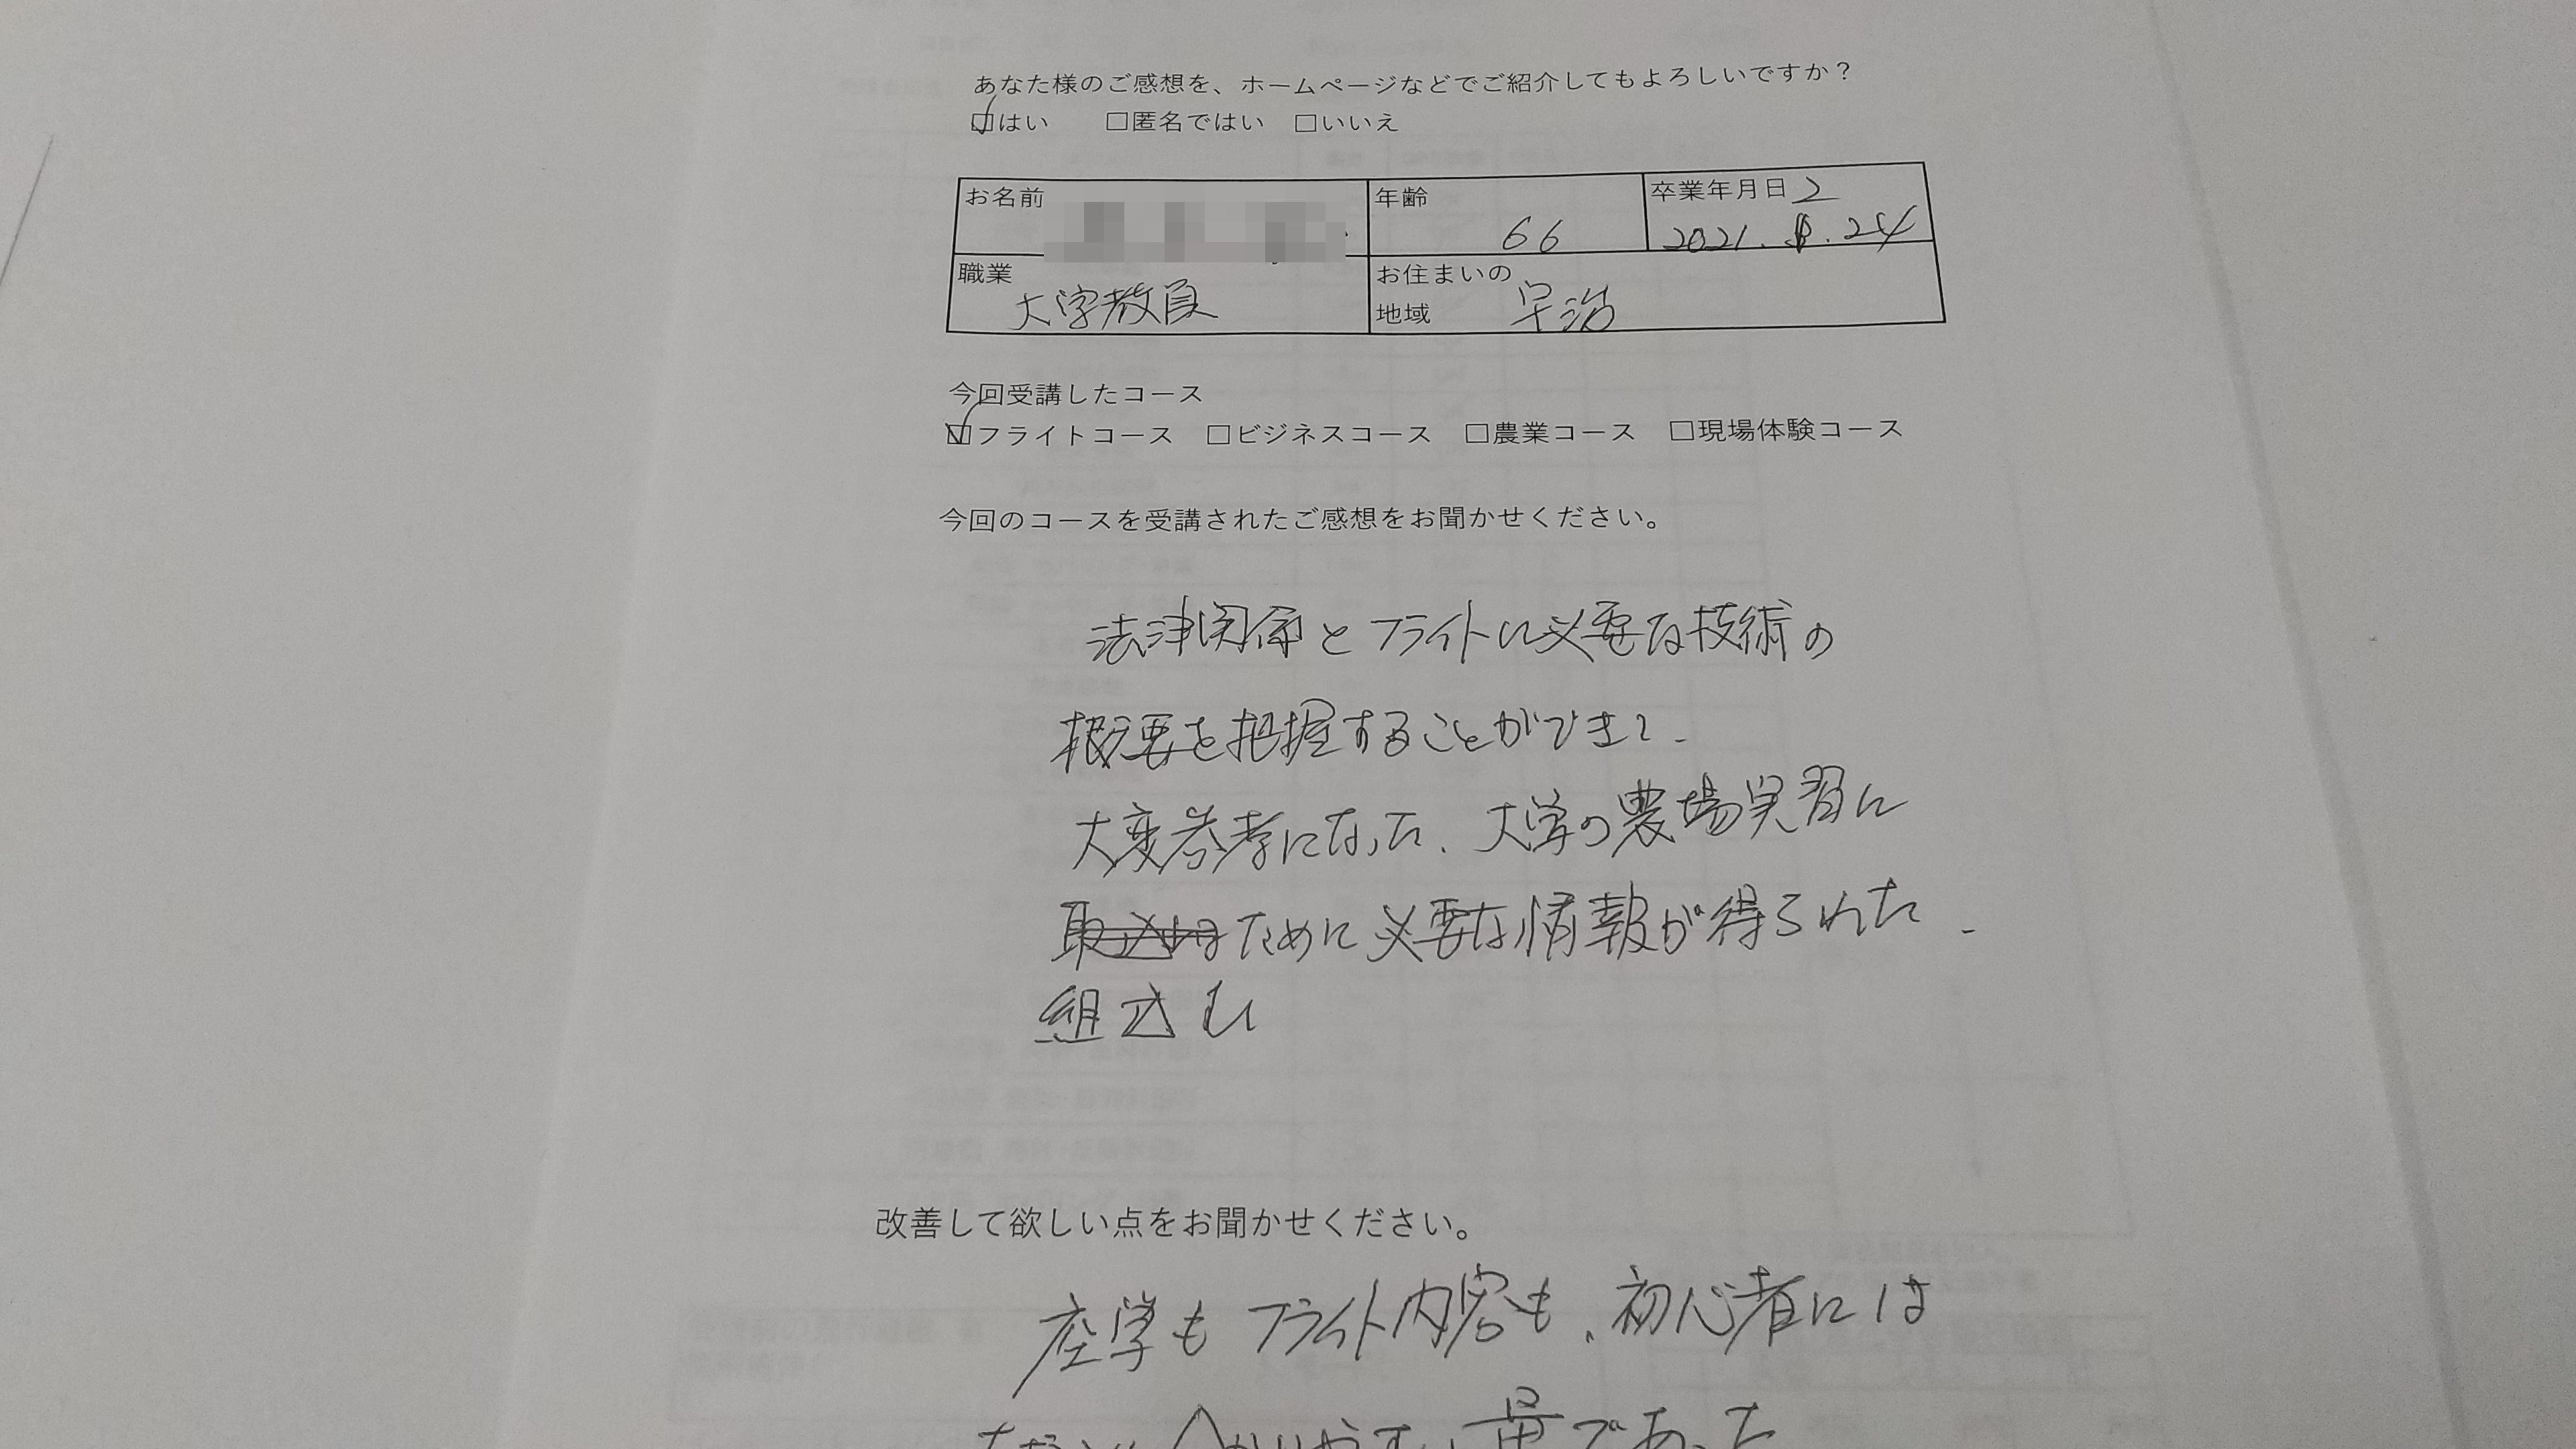 あなた様のご感想を、ホームページなどでご紹介してもよろしいですか？
☑はい　□匿名ではい　□いいえ
お名前
年齢 66
卒業年月日 2
2021. .24
職業 大学教員
お住まいの
地域 宇治
今回受講したコース
☑フライトコース　□ビジネスコース　□農業コース　□現場体験コース
今回のコースを受講されたご感想をお聞かせください。
法律関係とフライトに必要な技術の
概要を把握することができて、
大変参考になった。大学の農場実習に
取込むために必要な情報が得られた。
組込む
改善して欲しい点をお聞かせください。
座学もフライト内容も、初心者には
量であった